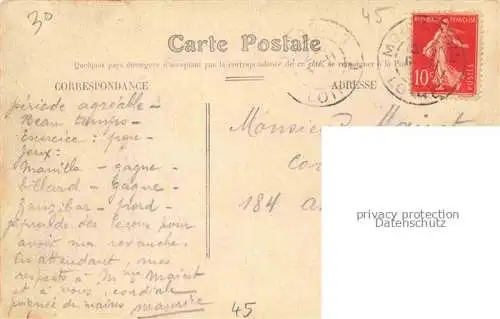 30
45
Carte Postale
Quelques pays étrangers n'acceptent pas la correspondance de ce côté, se renseigner à la Poste
CORRESPONDANCE
ADRESSE
REPUBLIQUE FRANÇAISE
10c
POSTES
période agréable -
Beau temps -
Exercice :
Jeux :
Manilla - gagne -
billard - Gagne -
Zanzibar - perd -
je prends des leçons pour
avoir ma revanche.
En attendant, mes
respects à Mme
et à vous, cordiale
poignée de mains Maurice
Monsieur
184
45
privacy protection
Datenschutz